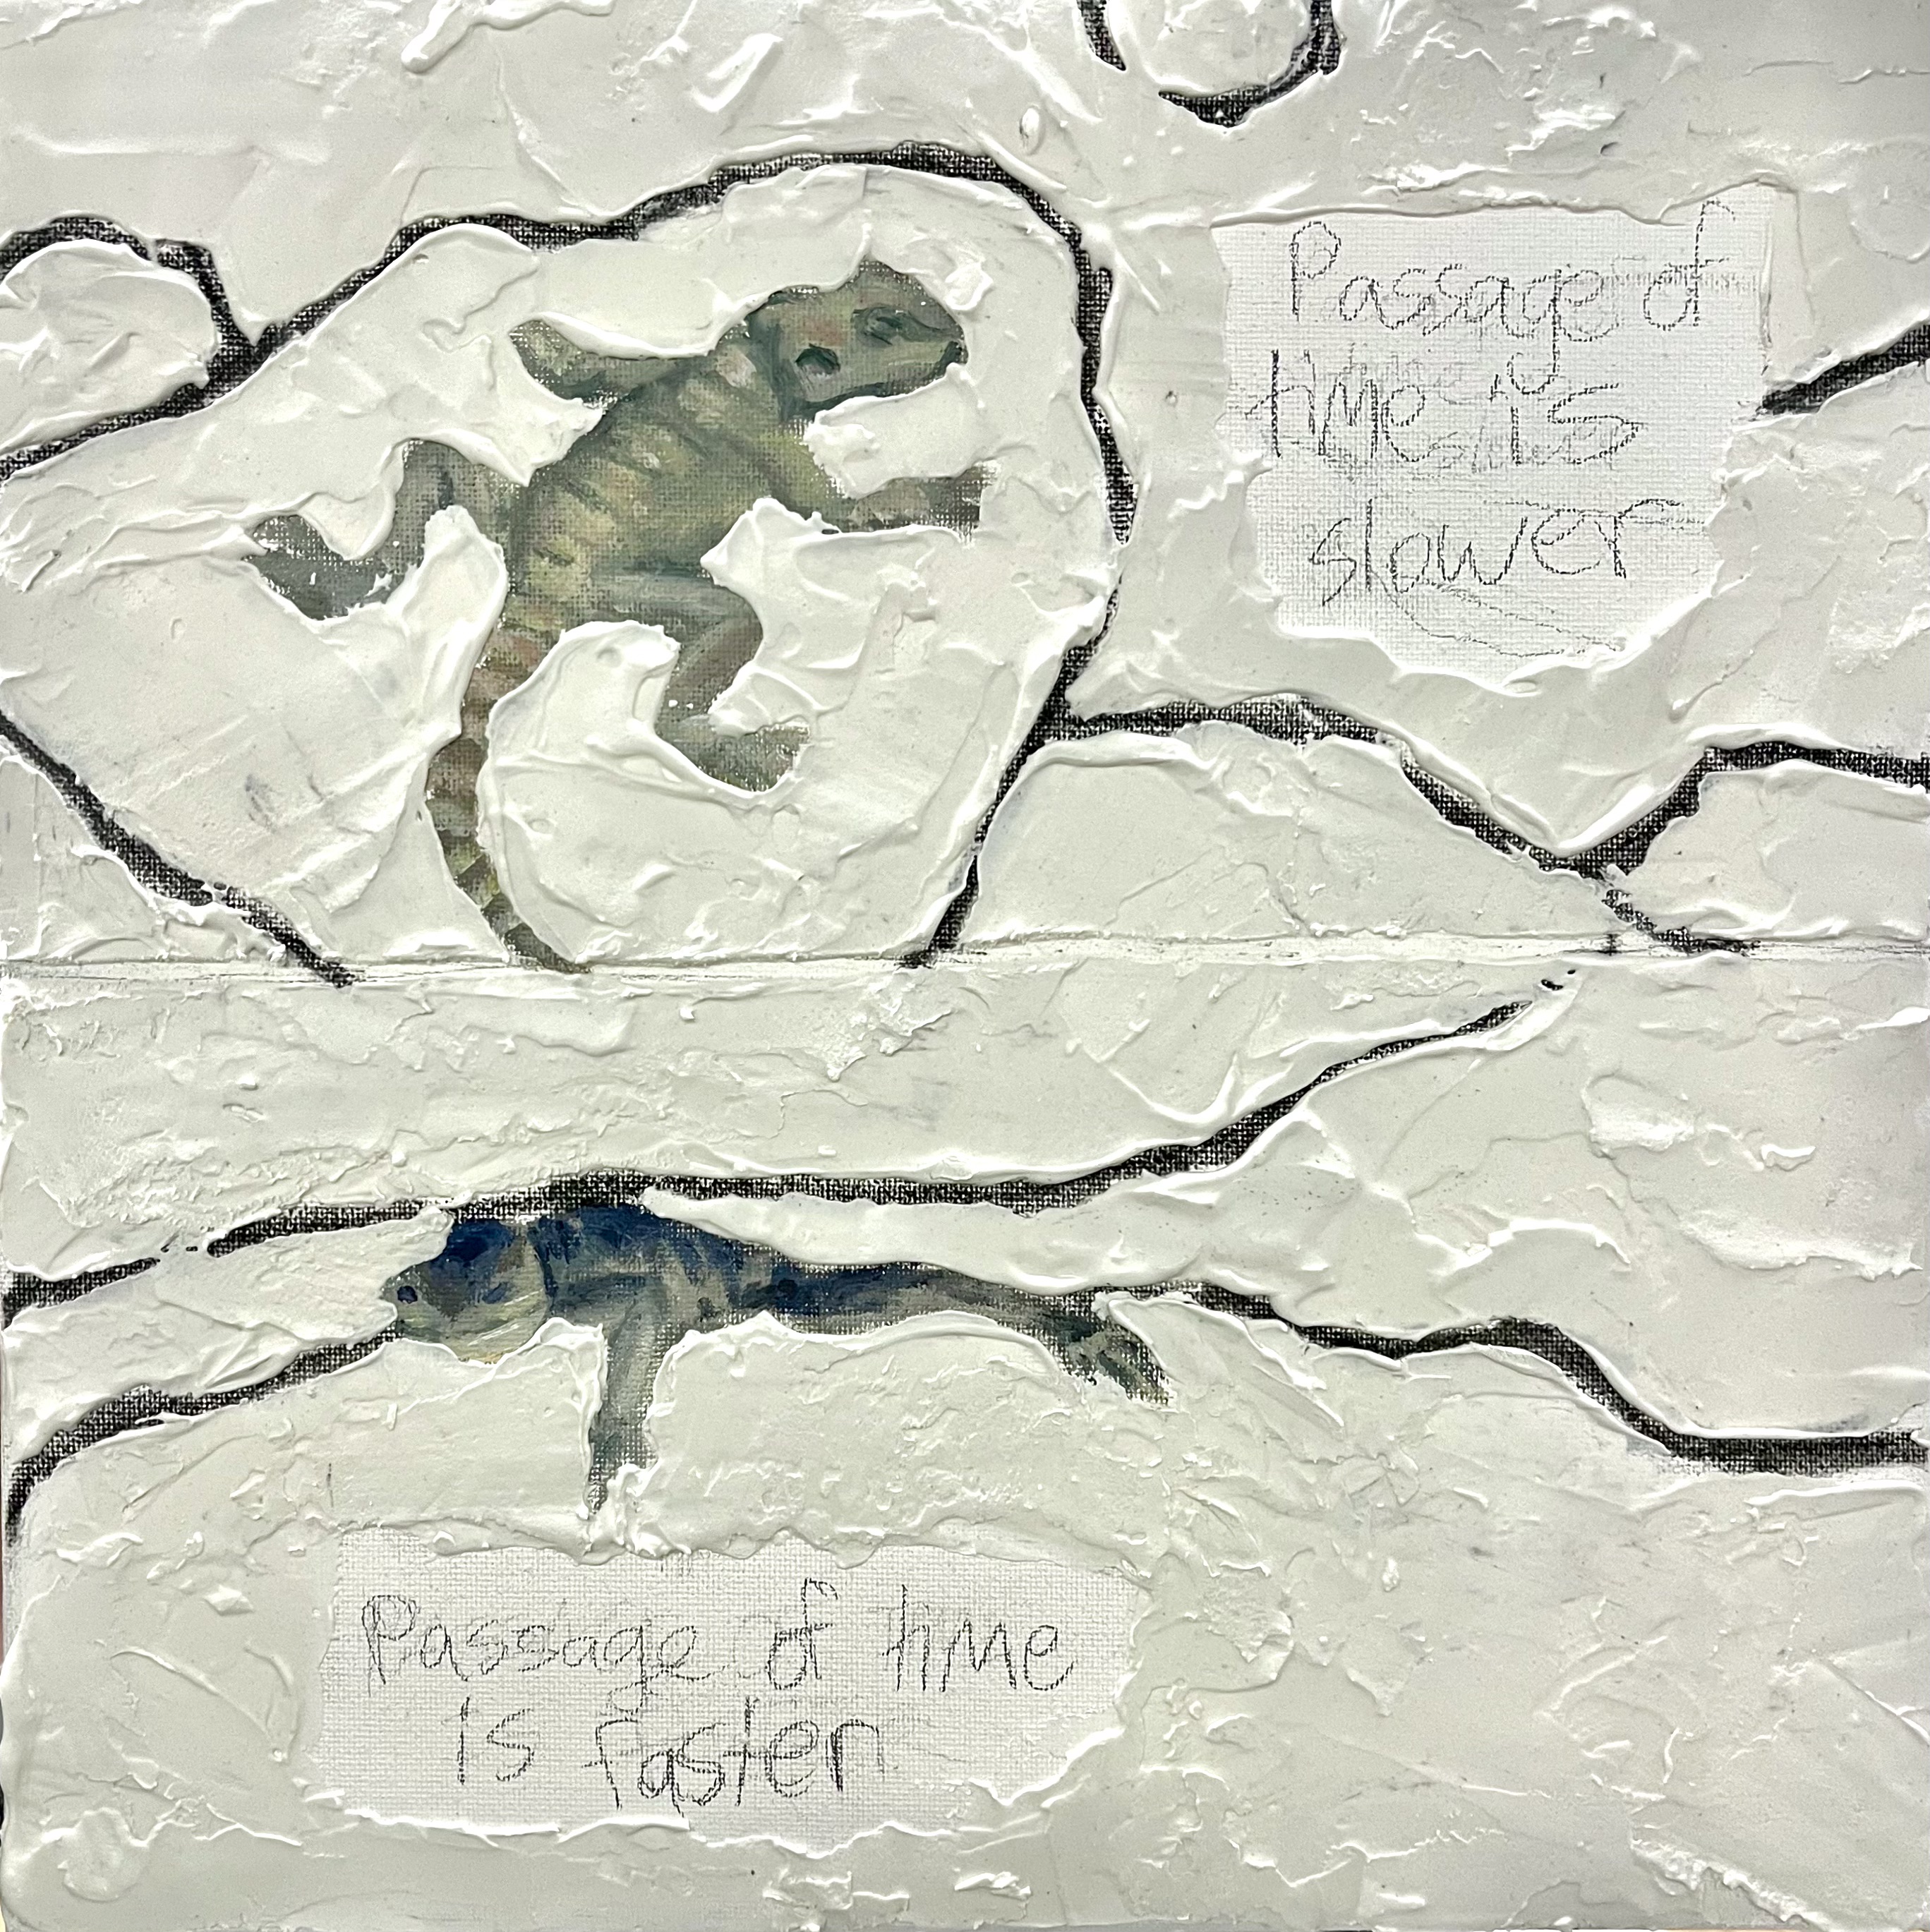 Passage of
time is
slower
Passage of time
is faster